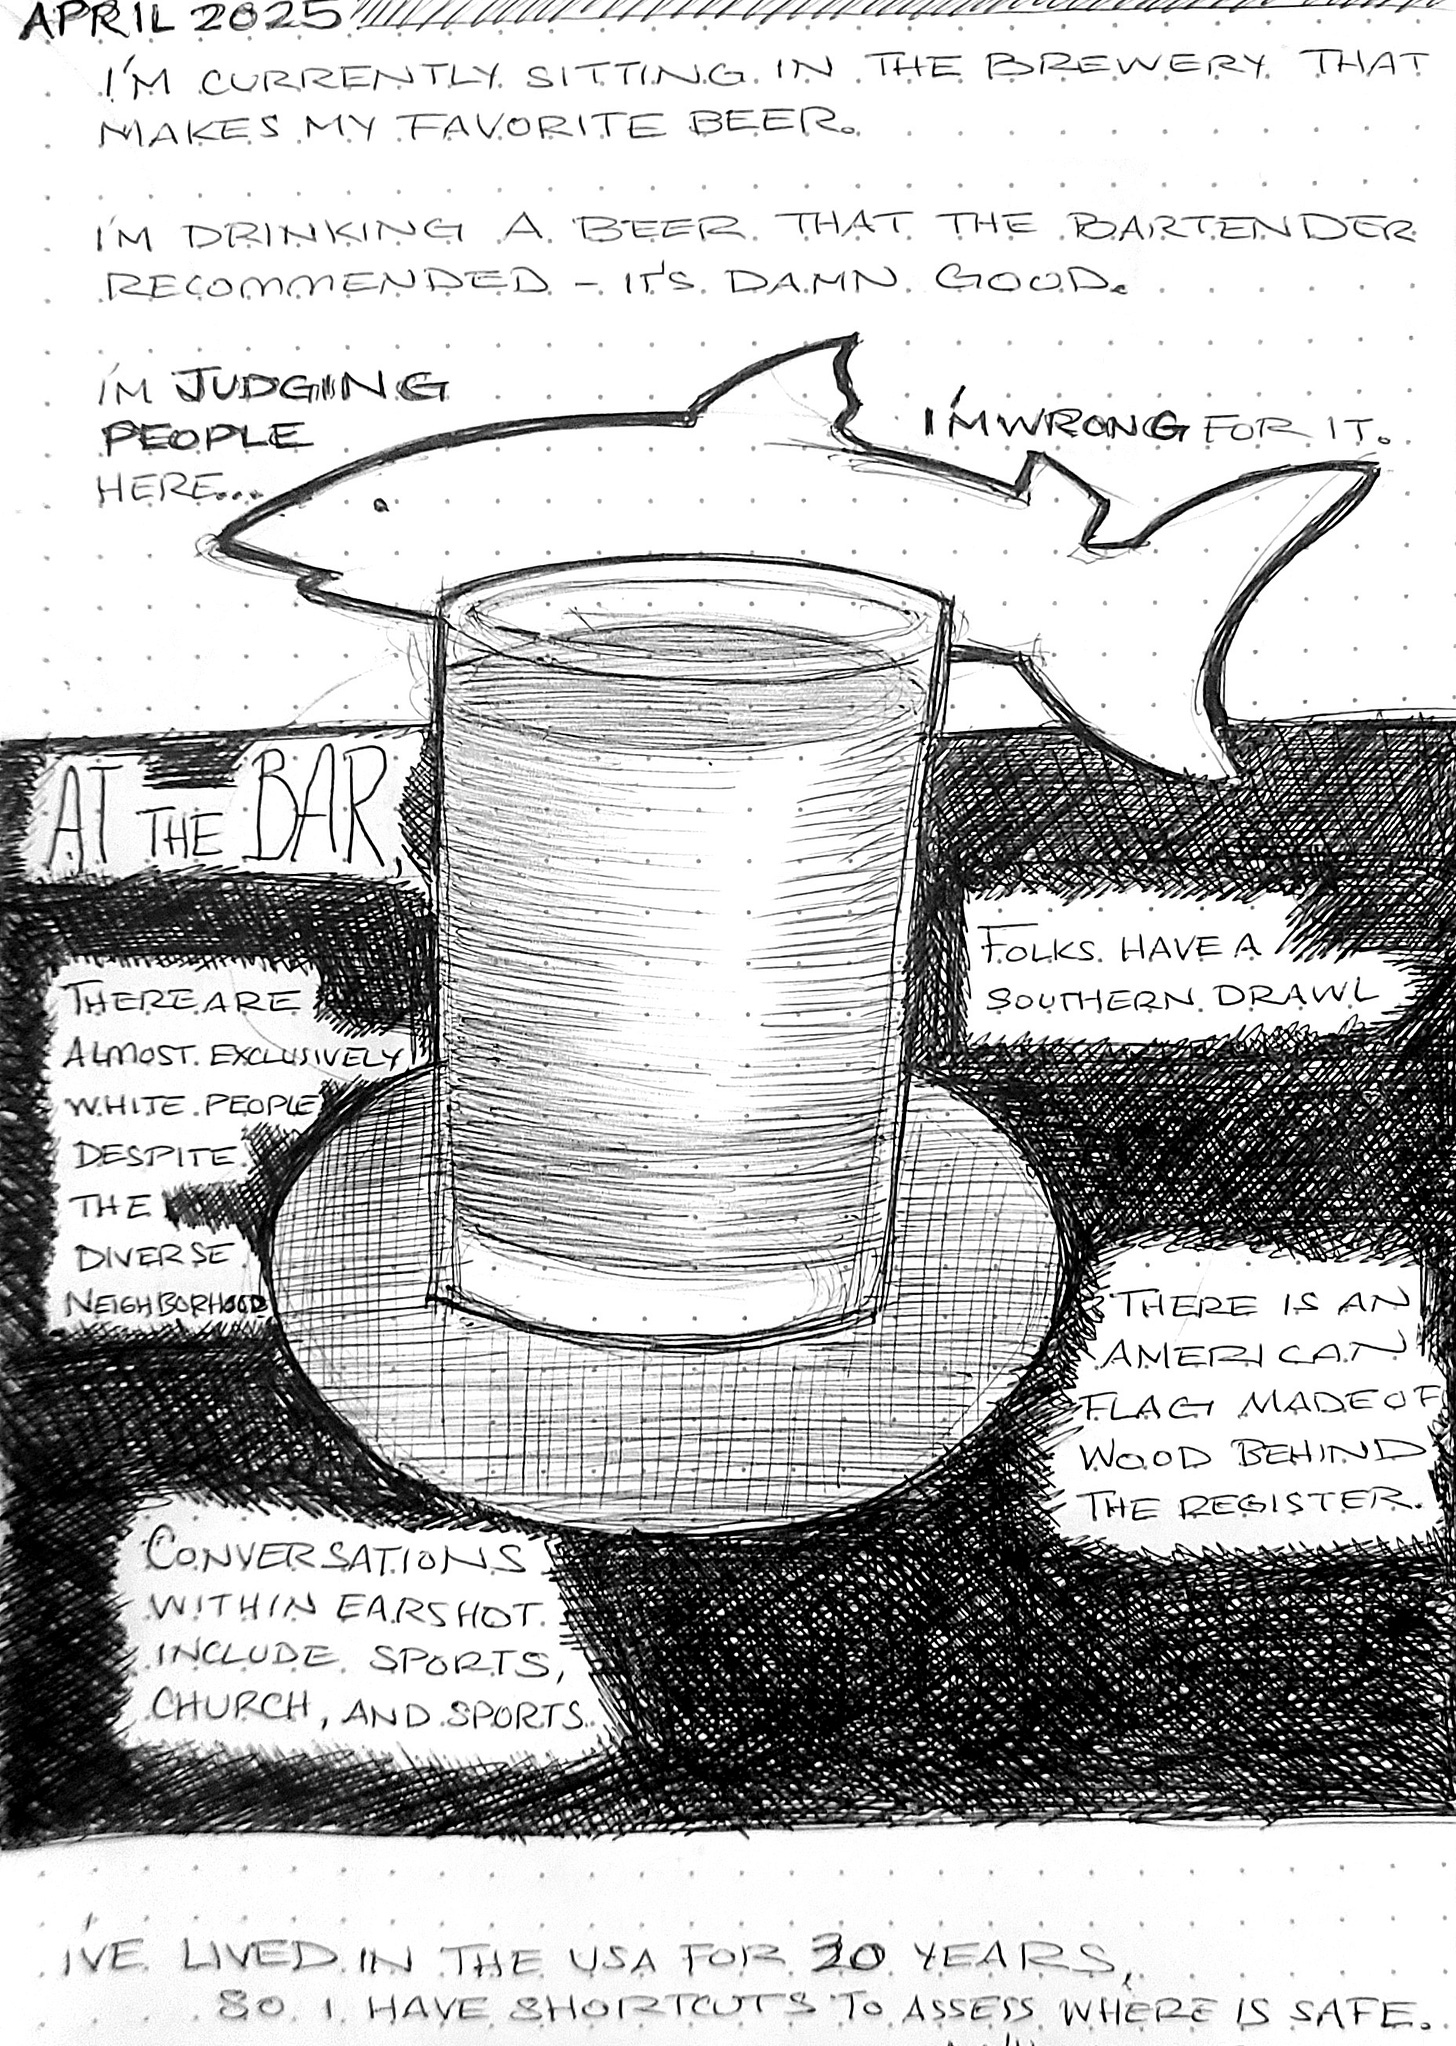 APRIL 2025
I'M CURRENTLY SITTING IN THE BREWERY THAT
MAKES MY FAVORITE BEER.
I'M DRINKING A BEER THAT THE BARTENDER
RECOMMENDED – IT'S DAMN GOOD.
I'M JUDGING
PEOPLE
HERE...
I'M WRONG FOR IT.
AT THE BAR,
THERE ARE
ALMOST EXCLUSIVELY
WHITE PEOPLE
DESPITE
THE
DIVERSE
NEIGHBORHOOD
FOLKS HAVE A
SOUTHERN DRAWL
THERE IS AN
AMERICAN
FLAG MADE OF
WOOD BEHIND
THE REGISTER.
CONVERSATIONS
WITHIN EARSHOT
INCLUDE SPORTS,
CHURCH, AND SPORTS.
I'VE LIVED IN THE USA FOR YEARS,
SO I HAVE SHORTCUTS TO ASSESS WHERE IS SAFE.